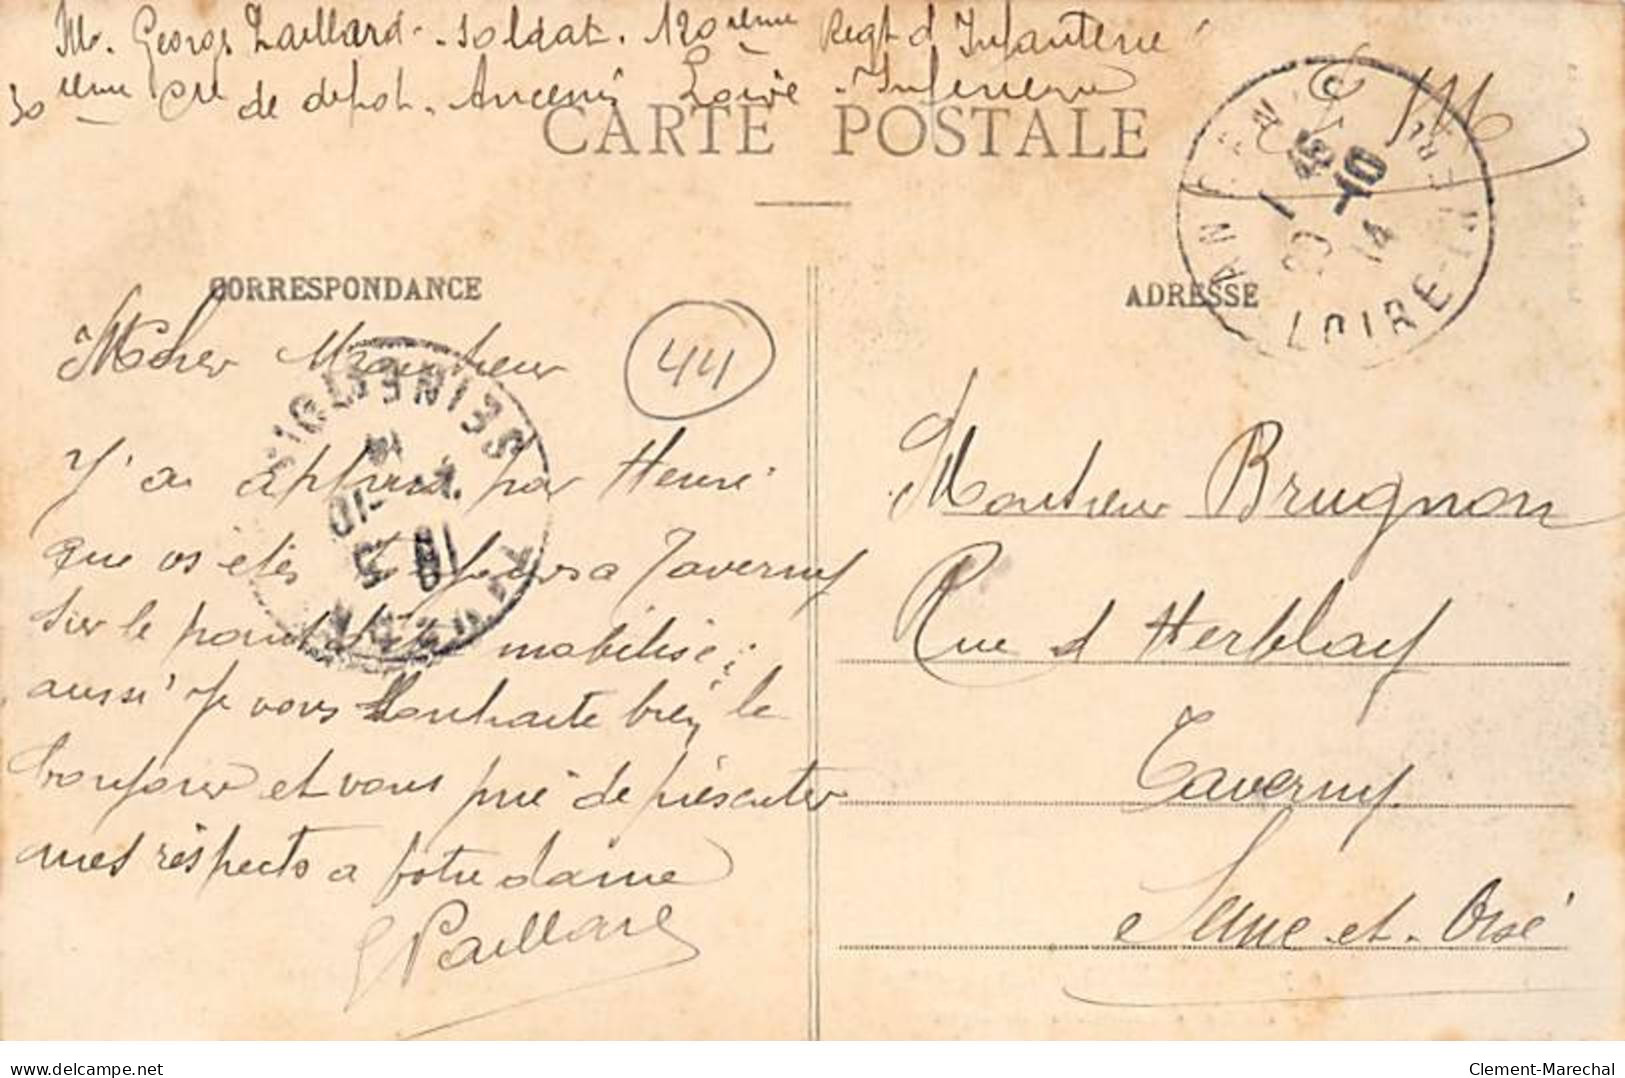 Mr. Georges Paillard. soldat. 120ieme Regt d Infanterie
30ieme Cie de depot. Ancenis Loire - Inferieure
F M
CARTE POSTALE
ANCENIS
1 45
20 10
14
LOIRE-INFRE
CORRESPONDANCE
ADRESSE
44
Mcher Monsieur
J'ai appris par Henri
que vs étés toujours a Taverny
sur le point d'être mobilisé;
aussi je vous souhaite bien le
bonjour et vous prie de présenter
mes respects a votre dame
G Paillard
TAVERNY
18
5 -10
14
SEINE-ET-OISE
Monsieur Brugnon
Rue d Herblay
Taverny
Seine-et-Oise
Clement-Marechal